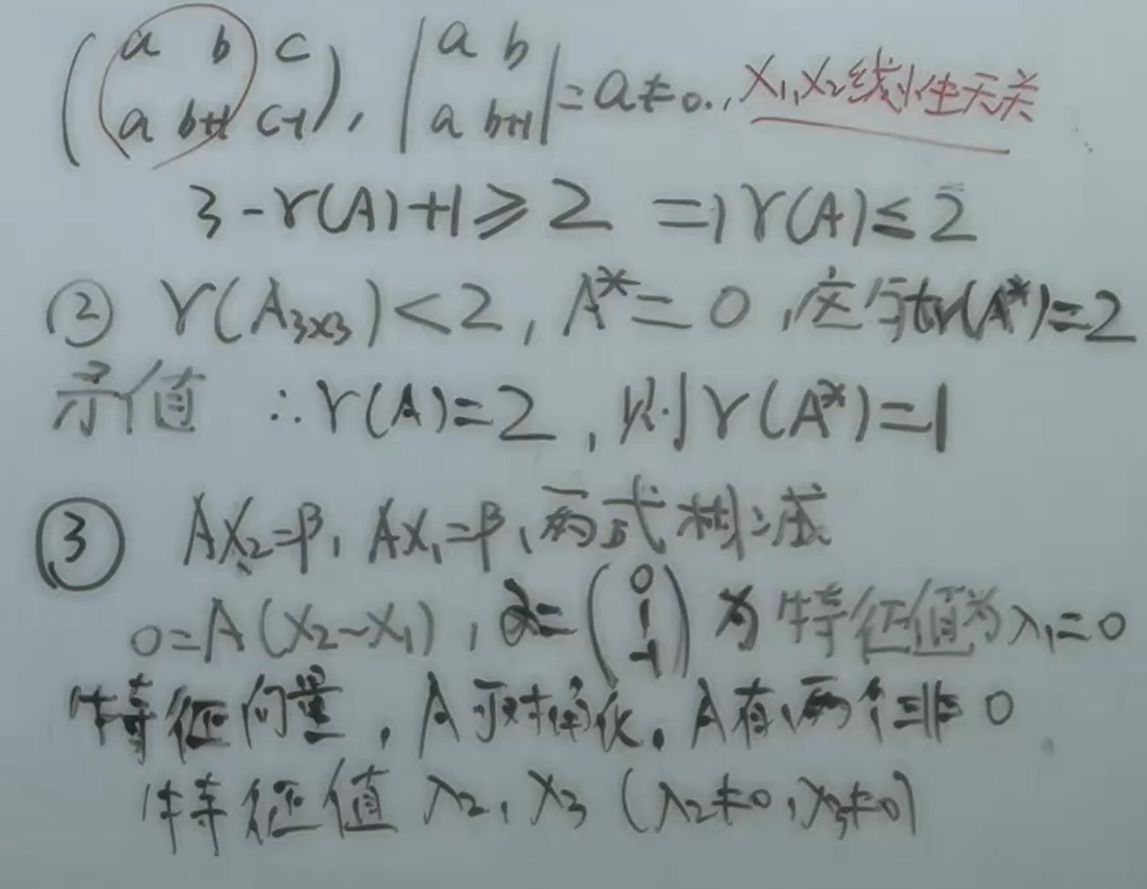 (a b c
a b+1 c-1), |a b
a b+1| = a ≠ 0., X₁,X₂线性无关
3-r(A)+1≥2 ⇒ r(A)≤2
② r(A₃ₓ₃)<2, A*=0, 这与tr(A*)=2
矛值 ∴r(A)=2, 则r(A*)=1
③ AX₂=β, AX₁=β, 两式相减
0=A(X₂-X₁), α=(0 1 -1) 为特征值为λ₁=0
特征向量, A可对角化. A有两个非0
特征值 λ₂, λ₃ (λ₂≠0, λ₃≠0)